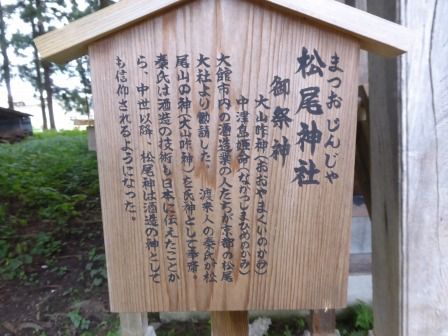 まつお じんじゃ
松尾神社
御祭神
大山咋神(おおやまくいのかみ)
中津島姫命(なかつしまひめのかみ)
大館市内の酒造業の人たちが京都の松尾
大社より勧請した。 渡来人の秦氏が松
尾山の神(大山咋神)を氏神として奉齋。
秦氏は酒造の技術も日本に伝えたことか
ら、中世以降、松尾神は酒造の神として
も信仰されるようになった。